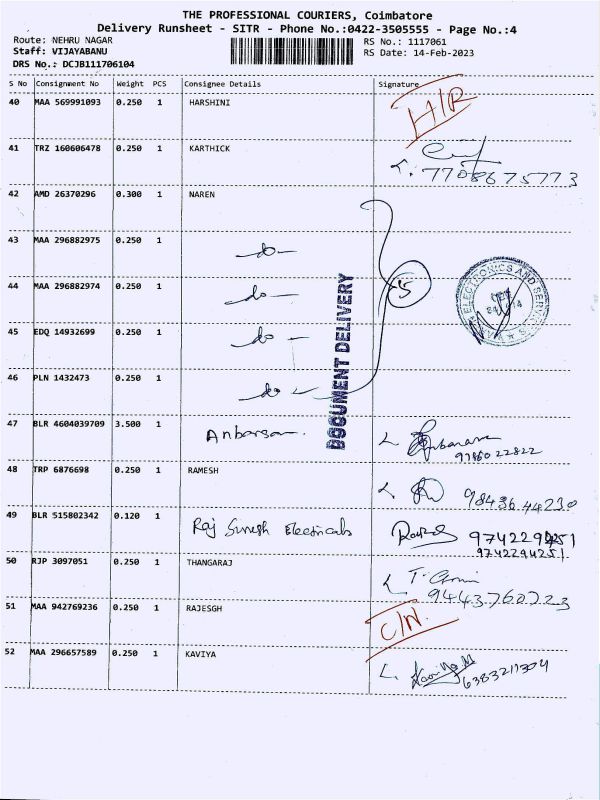 THE PROFESSIONAL COURIERS, Coimbatore
Delivery Runsheet - SITR - Phone No.:0422-3505555 - Page No.:4
Route: NEHRU NAGAR RS No.: 1117061
Staff: VIJAYABANU RS Date: 14-Feb-2023
DRS No.: DCJB111706104
S No Consignment No Weight PCS Consignee Details Signature
40 MAA 569991093 0.250 1 HARSHINI H/R
41 TRZ 160606478 0.250 1 KARTHICK
7708675773
42 AMD 26370296 0.300 1 NAREN
43 MAA 296882975 0.250 1 -do-
44 MAA 296882974 0.250 1 -do- 5
45 EDQ 14932699 0.250 1 -do-
46 PLN 1432473 0.250 1 -do-
DOCUMENT DELIVERY
ELECTRONICS AND SERVICES
47 BLR 4604039709 3.500 1 Anbarsan. Anbarasan
9786022822
48 TRP 6876698 0.250 1 RAMESH 9843644230
49 BLR 515802342 0.120 1 Raj Suresh Electricals
9742294251
50 RJP 3097051 0.250 1 THANGARAJ
9443760723
51 MAA 942769236 0.250 1 RAJESGH C/N.
52 MAA 296657589 0.250 1 KAVIYA
6383211304